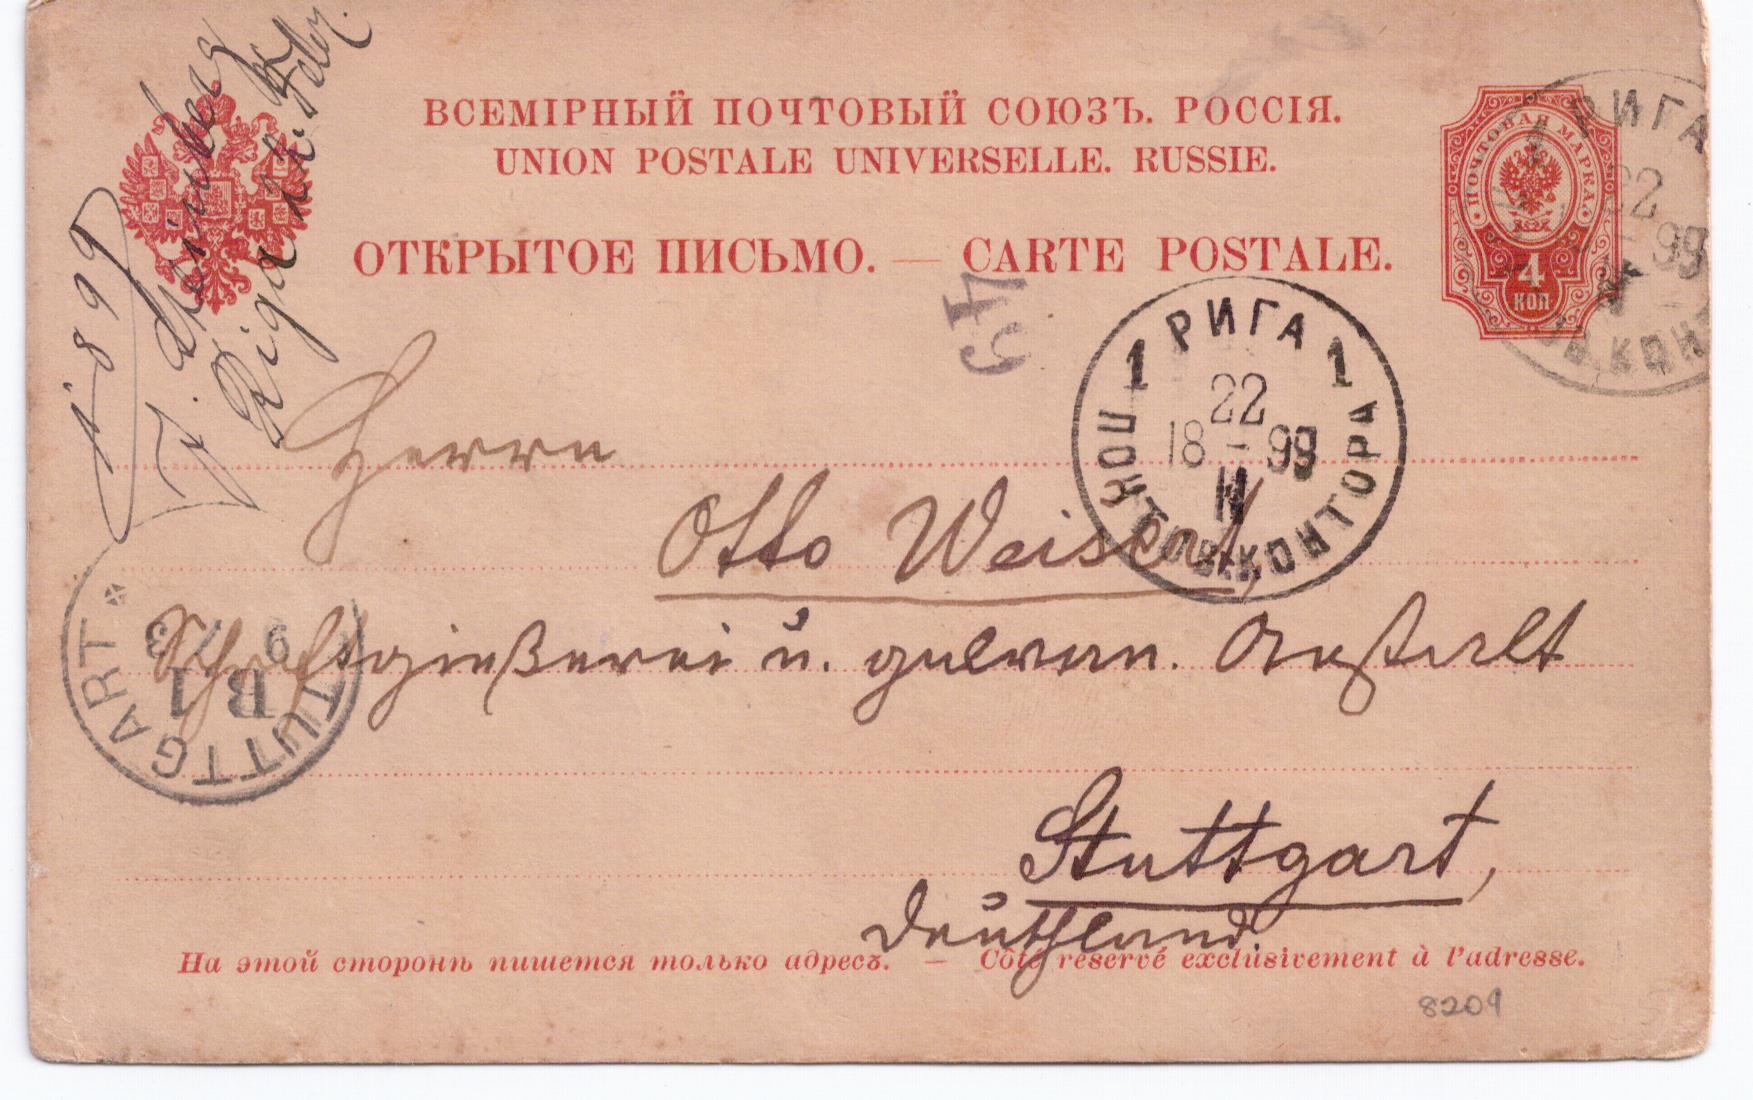 ВСЕМІРНЫЙ ПОЧТОВЫЙ СОЮЗЪ. РОССІЯ.
UNION POSTALE UNIVERSELLE. RUSSIE.
ОТКРЫТОЕ ПИСЬМО. — CARTE POSTALE.
ПОЧТОВАЯ МАРКА
4
КОП
РИГА
22
99
КОНТ
1 РИГА 1
22
18 - 99
II
ПОЧТОВ. КОНТОРА
64
1899
Riga
Herrn
Otto Weisert,
Schriftgießerei u. galvan. Anstalt
Stuttgart,
Deutschland.
STUTTGART
B1
На этой сторонѣ пишется только адресъ. — Côté réservé exclusivement à l'adresse.
8209